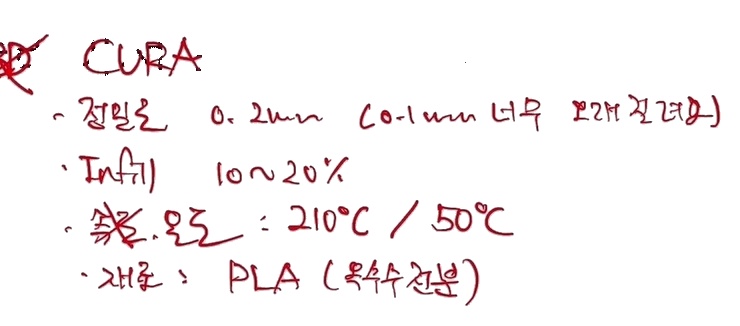 CURA
- 정밀도 0.2mm (0.1mm 너무 오래 걸려요)
· Infill 10~20%
· 온도 : 210°C / 50°C
· 재료 : PLA (옥수수전분)